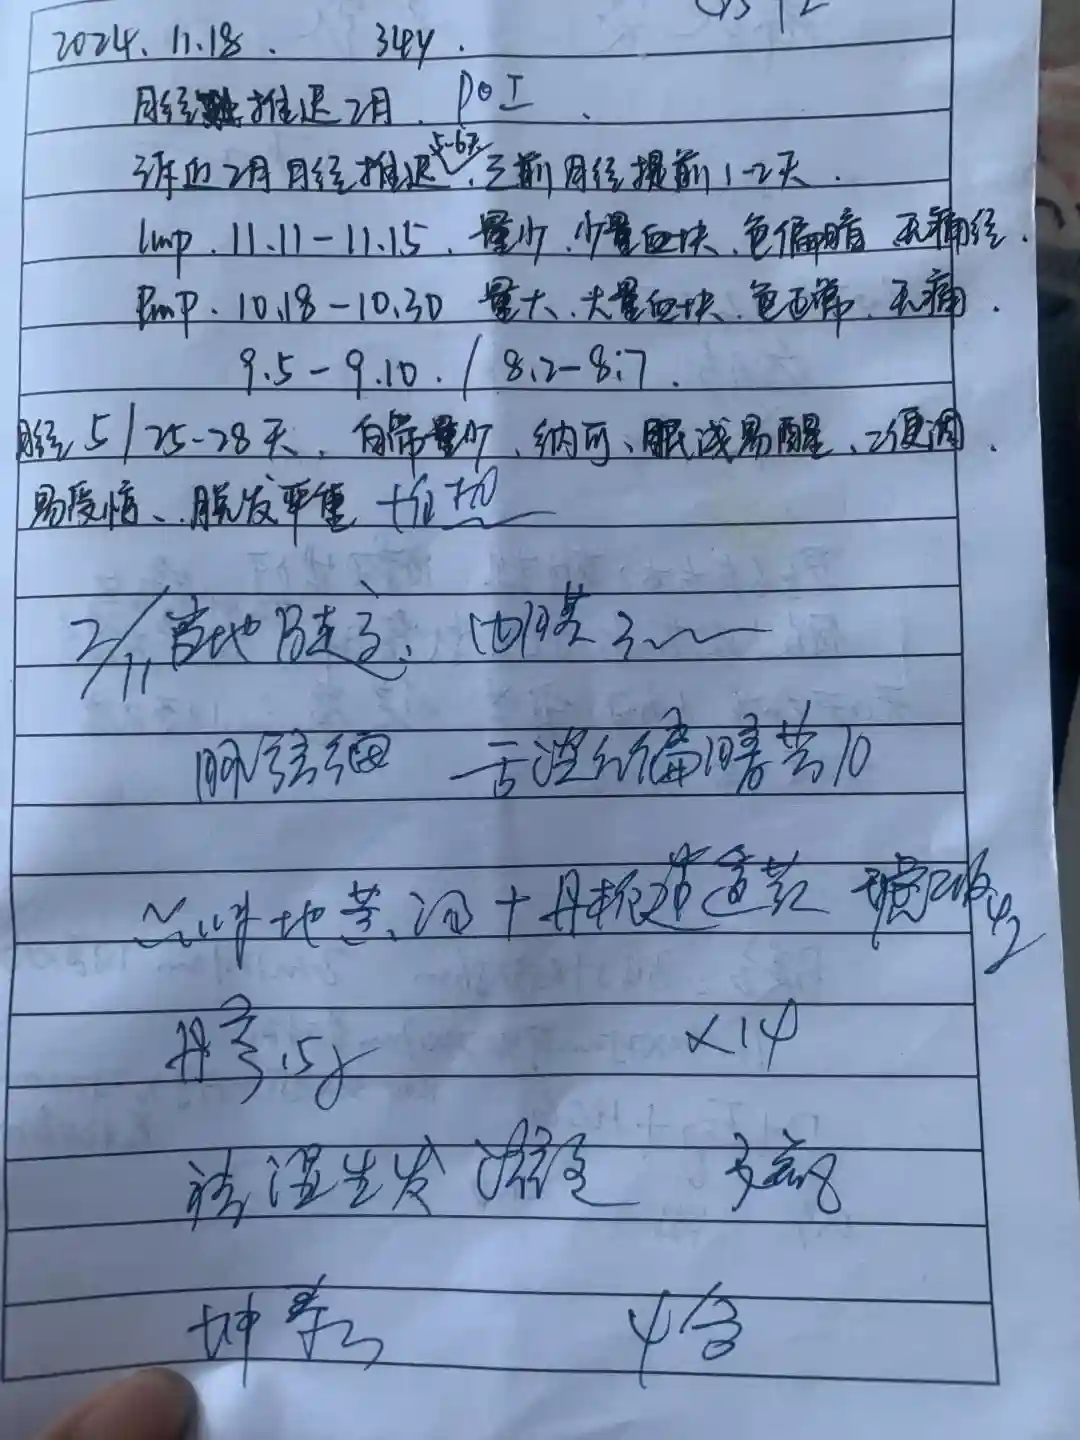 2024.11.18. 34y.
月经推迟2月. POI
诉近2月月经推迟5-6天, 之前月经提前1-2天.
lmp. 11.11-11.15. 量少. 少量血块. 色偏暗 无痛经.
Pmp. 10.18-10.30 量大. 大量血块. 色正常. 无痛.
9.5-9.10. / 8.2-8.7.
月经5/25-28天. 白带量少. 纳可、眠浅易醒、二便调.
易受惊、脱发严重
2/11 当地 内膜
脉弦细 舌淡红偏暗苔
地黄汤+丹栀逍遥 φ2
丹 15g ×14
祛湿生发
坤 4盒